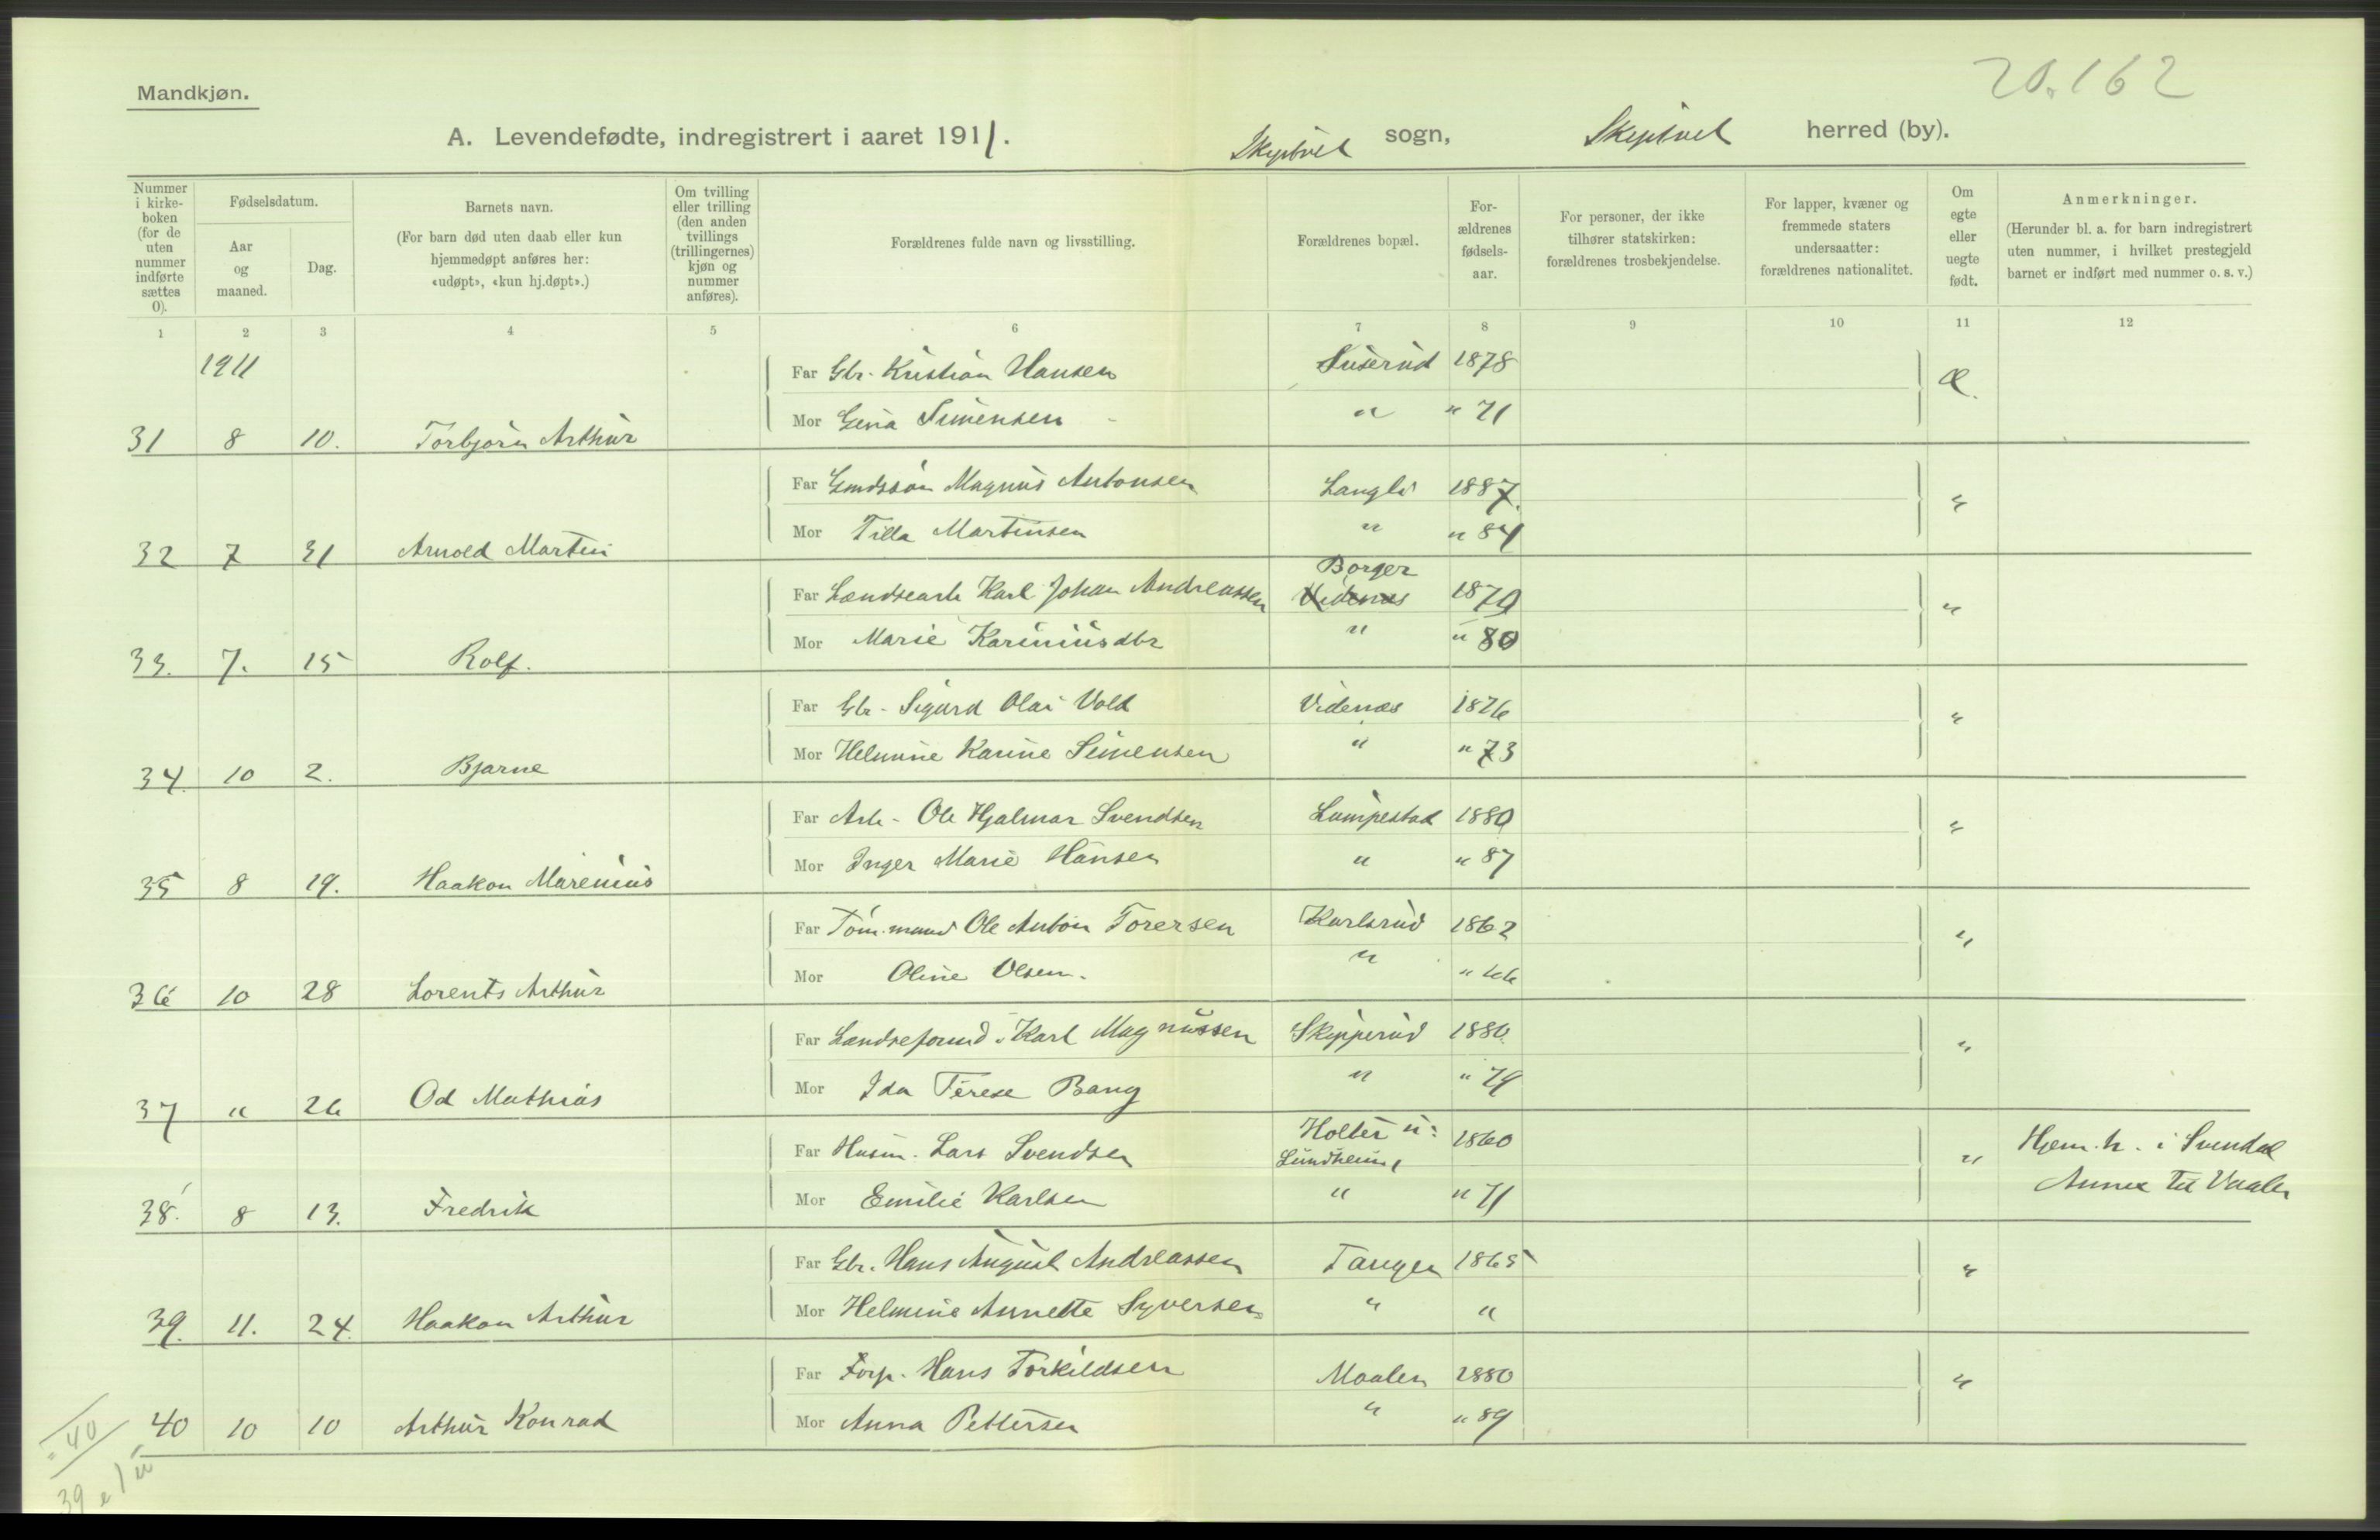 20.162
Mandkjøn.
A. Levendefødte, indregistrert i aaret 1911. Skiptvet sogn, Skiptvet herred (by).
Nummer i kirkeboken (for de uten nummer indførte sættes 0).
Fødselsdatum.
Aar og maaned.
Dag.
Barnets navn.
(For barn død uten daab eller kun hjemmedøpt anføres her: «udøpt», «kun hj.døpt».)
Om tvilling eller trilling (den anden tvillings (trillingernes) kjøn og nummer anføres).
Forældrenes fulde navn og livsstilling.
Forældrenes bopæl.
Forældrenes fødselsaar.
For personer, der ikke tilhører statskirken: forældrenes trosbekjendelse.
For lapper, kvæner og fremmede staters undersaatter: forældrenes nationalitet.
Om egte eller uegte født.
Anmerkninger.
(Herunder bl. a. for barn indregistrert uten nummer, i hvilket prestegjeld barnet er indført med nummer o. s. v.)
1 2 3 4 5 6 7 8 9 10 11 12
1911 Far Gbr. Kristian Hansen 1878 Æ.
Mor Gina Simensen " " 71
31 8 10. Torbjørn Arthur
Far Gmdssøn Magnus Antonsen Langli 1887. "
Mor Tilla Martinsen " " 84
32 7 31 Arnold Martin
Borger
Far Landsearb Karl Johan Andreassen Videnæs 1879 "
Mor Marie Kariniusdtr " " 80
33. 7. 15 Rolf.
Far Gbr - Sigurd Olai Vold Videnæs 1876 "
Mor Helmine Karine Simensen " " 73
34. 10 2. Bjarne
Far Arb - Ole Hjalmar Svendsen Lumpestad 1880 "
Mor Inger Marie Hansen " " 87
35 8 19. Haakon Marenius
Far Tøm.mand Ole Anton Torersen Karlsrud 1862 "
Mor Oline Olsen. " " 66
36 10 28 Lorents Arthur
Far Landseformd. Karl Magnussen Skipperud 1880. "
Mor Ida Terese Bang " " 79
37 " 26 Od Mathias
Far Husm. Lars Svendsen Holter u: Lundheim, 1860 " Hjem.h. i Svendal
Mor Emilie Karlsen " " 71 Annex til Vaaler
38. 8 13. Fredrik
Far Gbr. Hans August Andreassen Tangen 1865 "
Mor Helmine Annette Syversen " "
39. 11. 24. Haakon Arthur
Far Forp. Hans Torkildsen Maalen 1880 "
Mor Anna Pettersen " " 89
40 10 10 Arthur Konrad
= 40
39 e 1 u